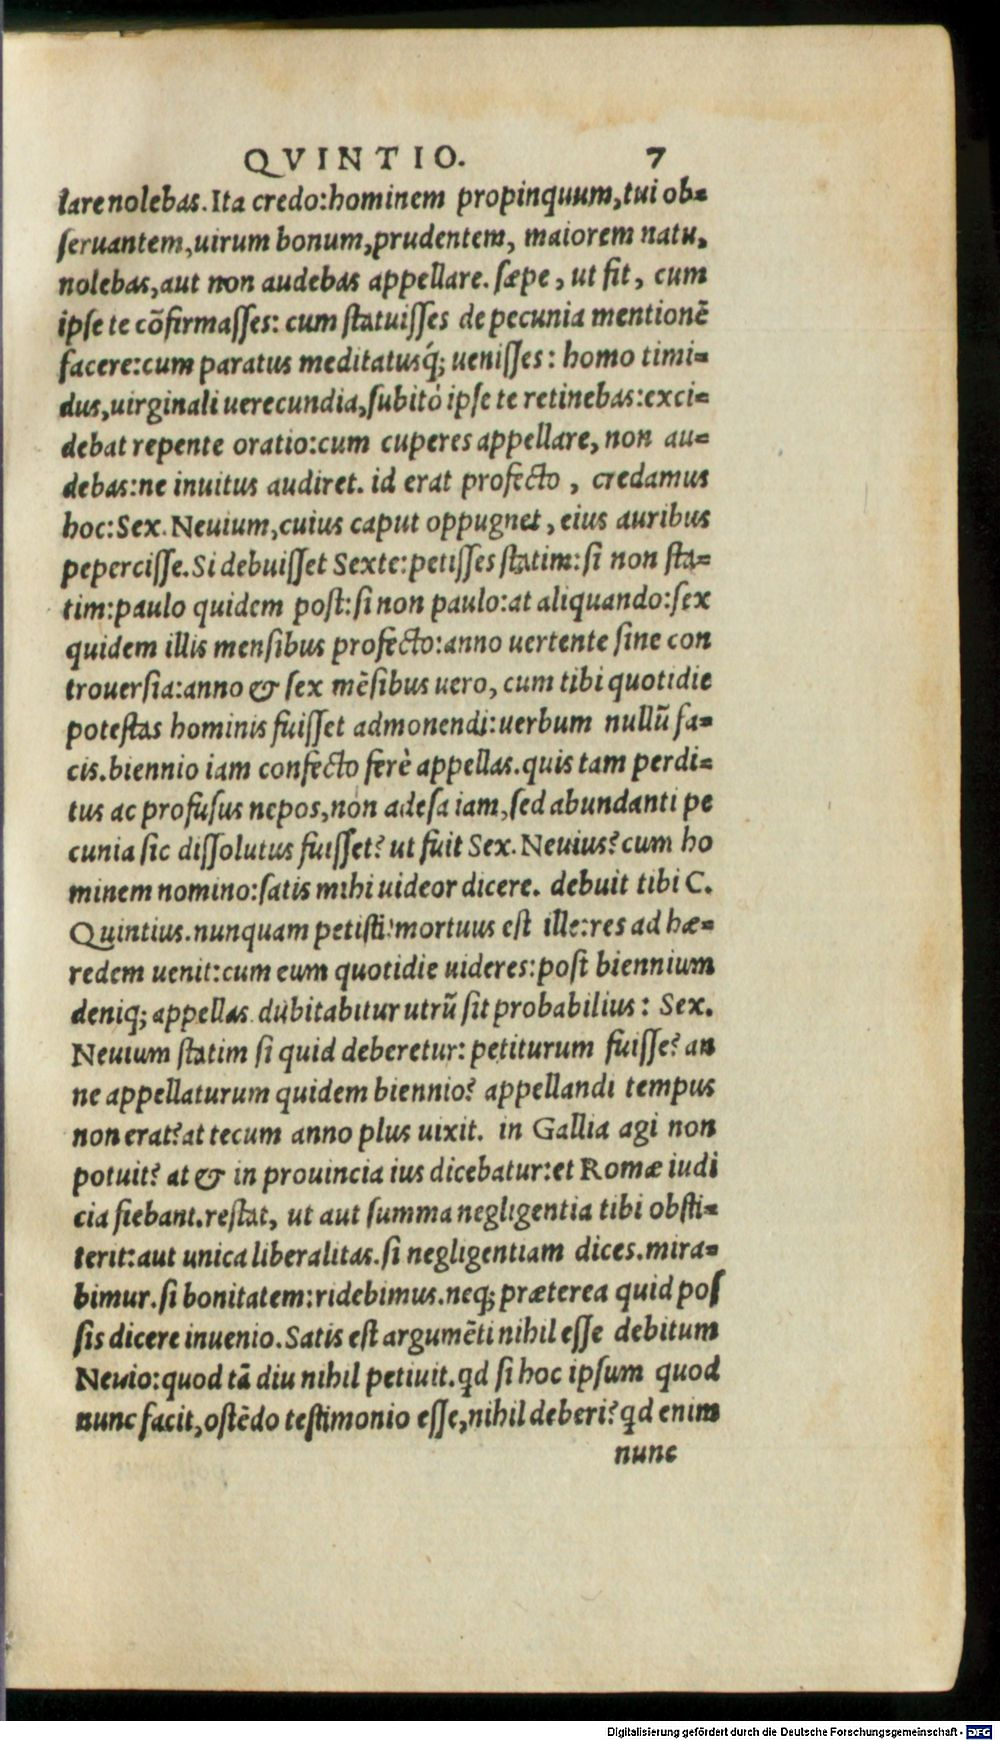 QVINTIO. 7
lare nolebas. Ita credo: hominem propinquum, tui ob=
ſeruantem, uirum bonum, prudentem, maiorem natu,
nolebas, aut non audebas appellare. ſæpe, ut fit, cum
ipſe te cõfirmaſſes: cum ſtatuiſſes de pecunia mentionẽ
facere: cum paratus meditatusq́; ueniſſes: homo timi=
dus, uirginali uerecundia, ſubitò ipſe te retinebas: exci=
debat repente oratio: cum cuperes appellare, non au=
debas: ne inuitus audiret. id erat profecto, credamus
hoc: Sex. Neuium, cuius caput oppugnet, eius auribus
peperciſſe. Si debuiſſet Sexte: petiſſes ſtatim: ſi non ſta=
tim: paulo quidem poſt: ſi non paulo: at aliquando: ſex
quidem illis menſibus profecto: anno uertente ſine con
trouerſia: anno & ſex mẽſibus uero, cum tibi quotidie
poteſtas hominis fuiſſet admonendi: uerbum nullũ fa=
cis. biennio iam confecto ferè appellas. quis tam perdi=
tus ac profuſus nepos, non adeſa iam, ſed abundanti pe
cunia ſic diſſolutus fuiſſet? ut fuit Sex. Neuius? cum ho
minem nomino: ſatis mihi uideor dicere. debuit tibi C.
Quintius. nunquam petiſti: mortuus eſt ille: res ad hæ=
redem uenit: cum eum quotidie uideres: poſt biennium
deniq; appellas. dubitabitur utrũ ſit probabilius: Sex.
Neuium ſtatim ſi quid deberetur: petiturum fuiſſe? an
ne appellaturum quidem biennio? appellandi tempus
non erat? at tecum anno plus uixit. in Gallia agi non
potuit? at & in prouincia ius dicebatur: et Romæ iudi
cia fiebant. reſtat, ut aut ſumma negligentia tibi obſti=
terit: aut unica liberalitas. ſi negligentiam dices. mira=
bimur. ſi bonitatem: ridebimus. neq; præterea quid poſ
ſis dicere inuenio. Satis eſt argumẽti nihil eſſe debitum
Neuio: quod tã diu nihil petiuit. qd ſi hoc ipſum quod
nunc facit, oſtẽdo teſtimonio eſſe, nihil deberi? qd enim
nunc
Digitalisierung gefördert durch die Deutsche Forschungsgemeinschaft - DFG